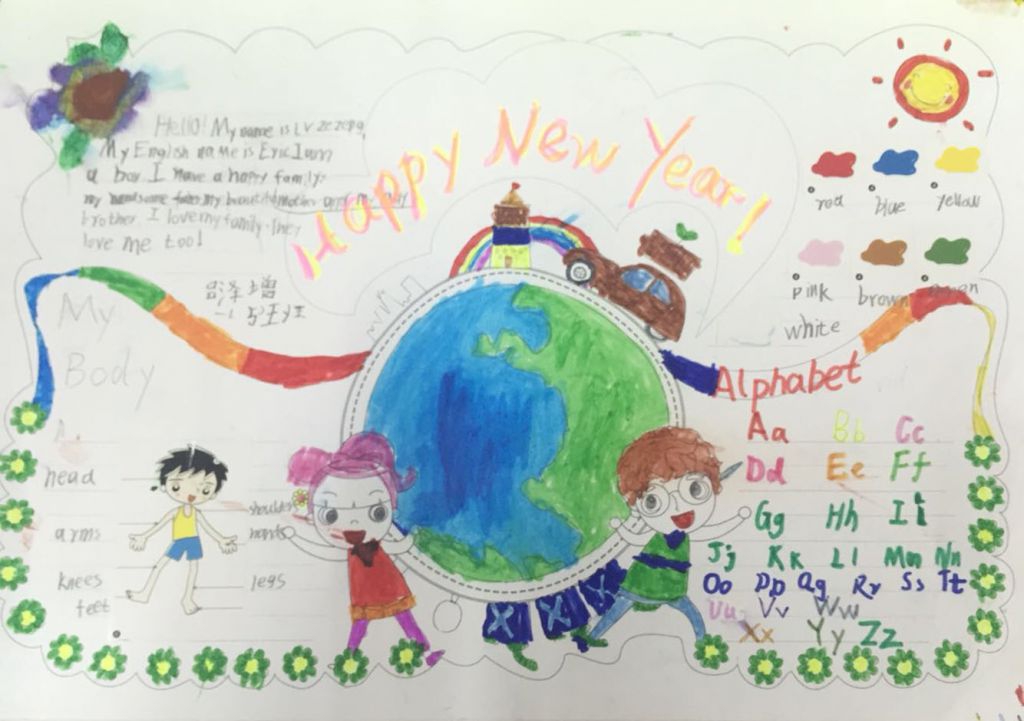 Happy New Year!
Hello! My name is Lv zezeng,
My English name is Eric I am
a boy I have a happy family
my handsome my beautiful mother my
brother. I love my family. they
love me too!
吕泽增
My
Body
head
arms
knees
feet
shoulders
hands
legs
red
blue
yellow
pink
brown
green
white
Alphabet
Aa Bb Cc
Dd Ee Ff
Gg Hh Ii
Jj Kk Ll Mm Nn
Oo Pp Qq Rr Ss Tt
Uu Vv Ww
Xx Yy Zz